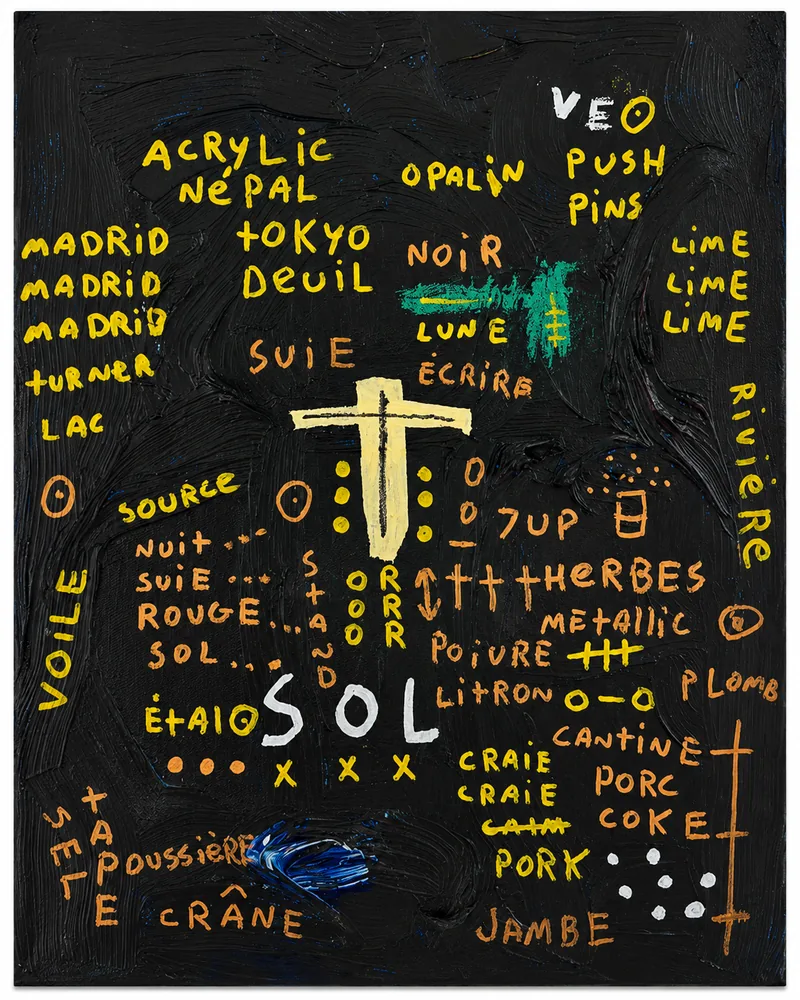 VEO
ACRYLiC
NéPAL
OPALiN
PUSH
PiNS
MADRiD
MADRiD
MADRiD
tURNER
LAC
tOKYO
DeUiL
NOiR
LUNE
ÉCRiRE
LiME
LiME
LiME
SUiE
RiVièRe
SOURCe
7UP
NUit ...
SUiE ...
ROUGE...
SOL...
StAND
O R
O R
O R
HeRBES
MEtALLiC
POiVRE
LitRON O-O
PLOMB
VOiLE
ÉtAIO
SOL
X X X
CANtiNE
PORC
COKE
CRAiE
CRAiE
PORK
SEL
tAPE
POUSSièRE
CRÂNE
JAMBE